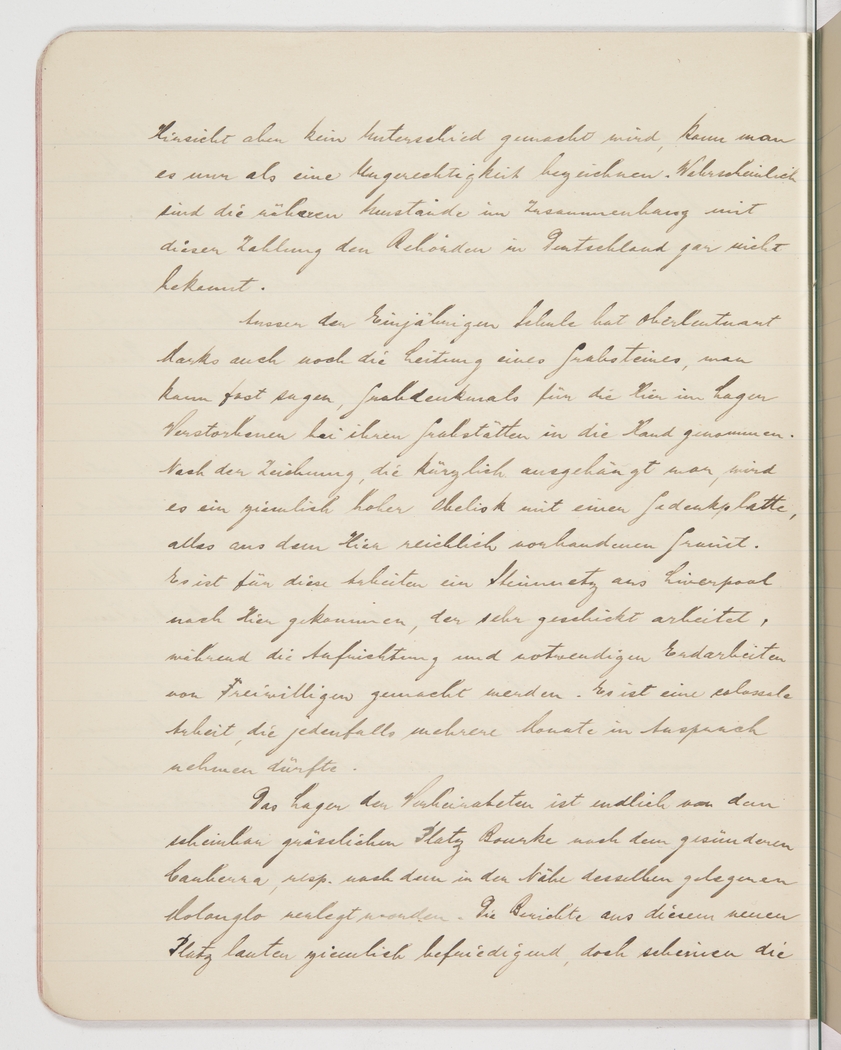 Hinsicht aber kein Unterschied gemacht wird, kann man
es nur als eine Ungerechtigkeit bezeichnen. Wahrscheinlich
sind die näheren Umstände im Zusammenhang mit
dieser Zahlung den Behörden in Deutschland gar nicht
bekannt.
Ausser der Einjährigen Schule hat Oberleutnant
Marks auch noch die Leitung eines Grabsteines, man
kann fast sagen, Grabdenkmals für die Hier im Lager
Verstorbenen bei ihren Grabstätten in die Hand genommen.
Nach der Zeichnung, die kürzlich ausgehängt war, wird
es ein ziemlich hoher Obelisk mit einer Gedenkplatte,
alles aus dem Hier reichlich vorhandenen Granit.
Es ist für diese Arbeiten ein Steinmetz aus Liverpool
nach Hier gekommen, der sehr geschickt arbeitet,
während die Aufrichtung und notwendigen Erdarbeiten
von Freiwilligen gemacht werden. Es ist eine colossale
Arbeit, die jedenfalls mehrere Monate in Anspruch
nehmen dürfte.
Das Lager der Verheirateten ist endlich von dem
scheinbar grässlichen Platz Bourke nach dem gesünderen
Canberra, resp. nach dem in der Nähe desselben gelegenen
Molonglo verlegt worden. Die Berichte aus diesem neuen
Platz lauten ziemlich befriedigend, doch scheinen die